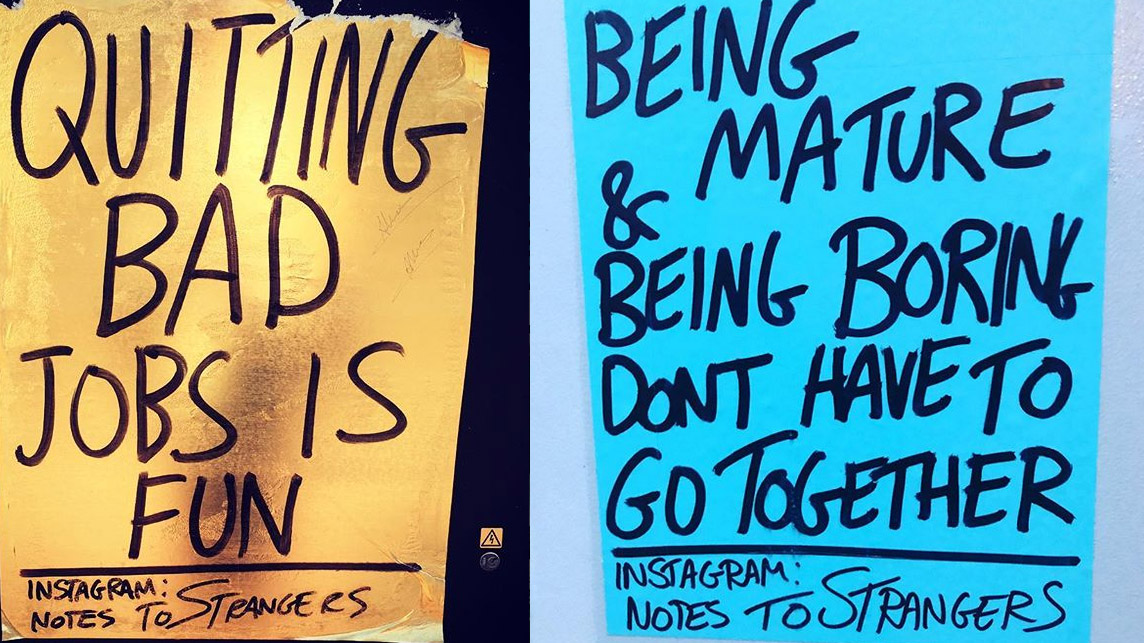 QUITTING
BAD
JOBS IS
FUN
INSTAGRAM:
NOTES TO STRANGERS
BEING
MATURE
&
BEING BORING
DONT HAVE TO
GO TOGETHER
INSTAGRAM:
NOTES TO STRANGERS